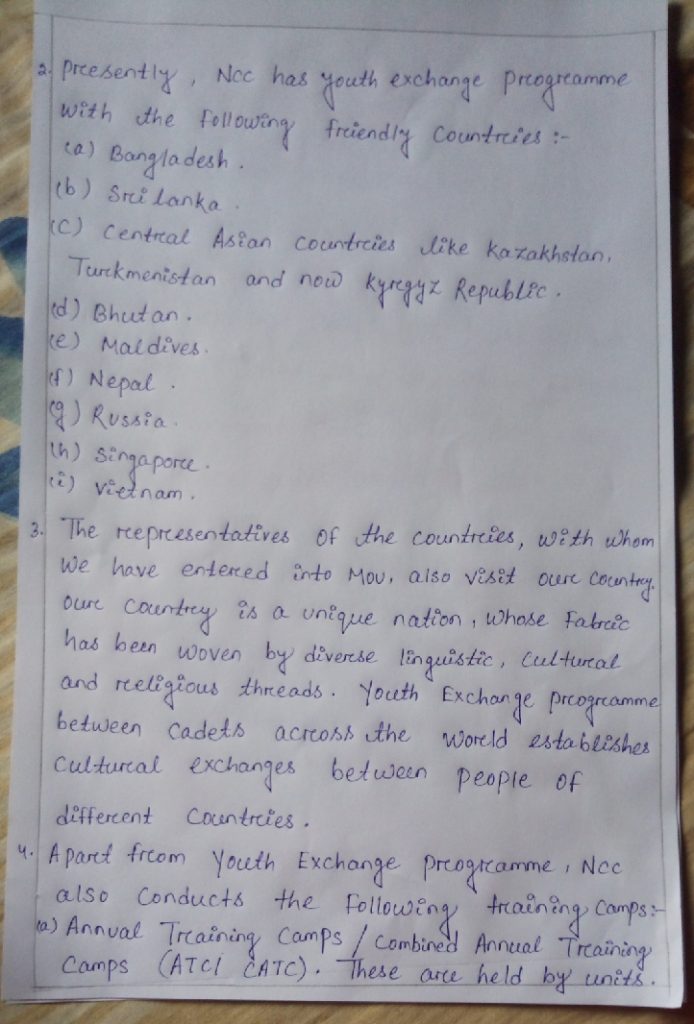 2. Presently, NCC has youth exchange programme
with the following friendly countries :-
(a) Bangladesh.
(b) Sri lanka.
(C) Central Asian countries like Kazakhstan,
Turkmenistan and now Kyrgyz Republic.
(d) Bhutan.
(e) Maldives.
(f) Nepal.
(g) Russia.
(h) Singapore.
(i) Vietnam.
3. The representatives of the countries, with whom
we have entered into MOU, also visit our country.
Our country is a unique nation, whose Fabric
has been woven by diverse linguistic, Cultural
and religious threads. Youth Exchange programme
between Cadets across the world establishes
Cultural exchanges between people of
different Countries.
4. Apart from Youth Exchange programme, NCC
also Conducts the Following training Camps:-
(a) Annual Training Camps / Combined Annual Training
Camps (ATC/ CATC). These are held by units.